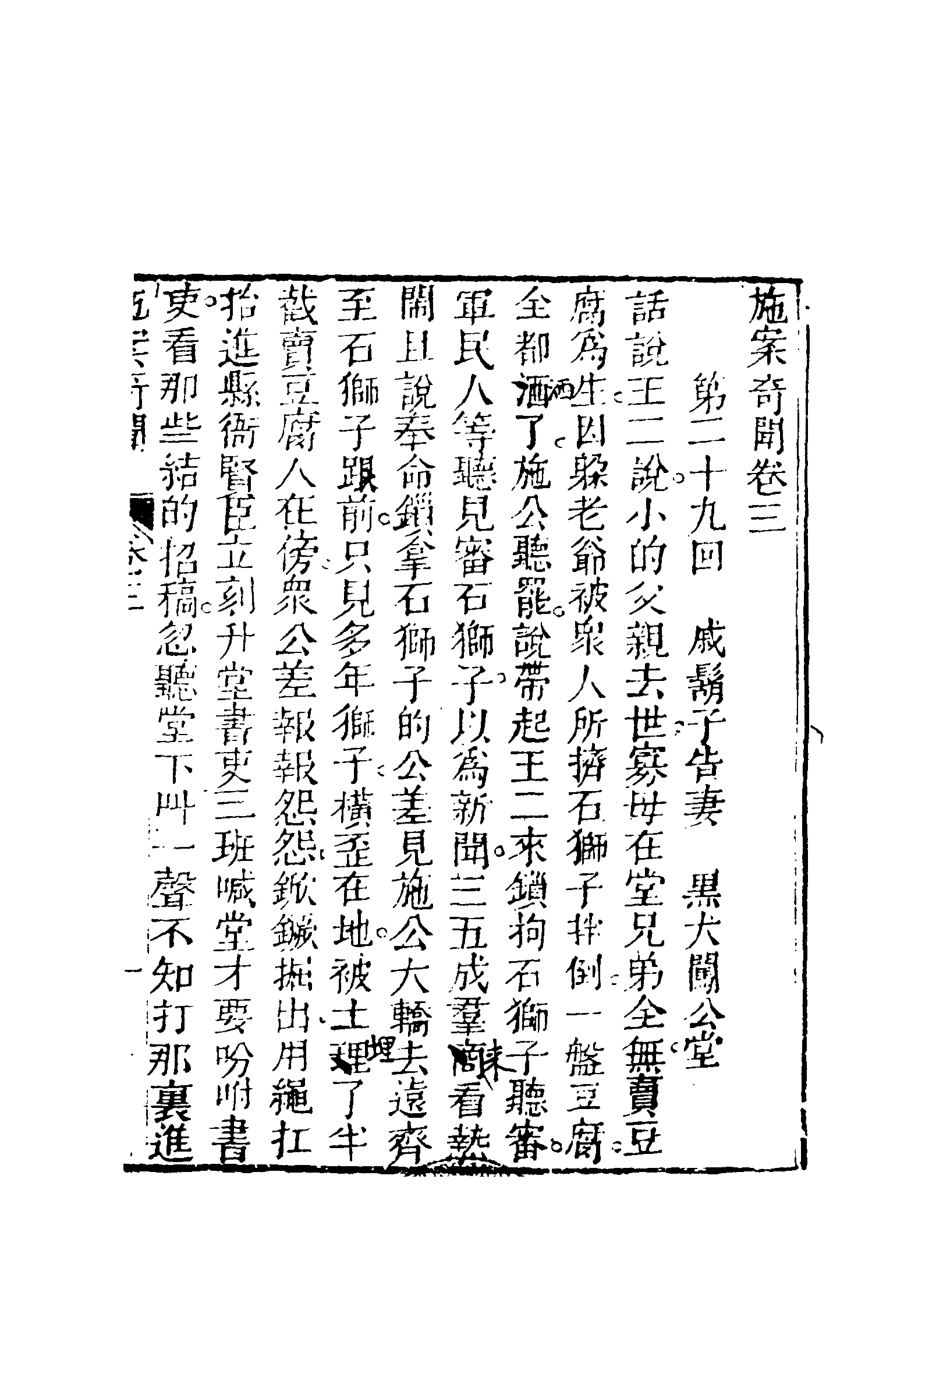 施案奇聞卷三
第二十九回　戚鬍子告妻　黑犬闖公堂
話說王二說。小的父親去世。寡母在堂。兄弟全無。賣豆
腐爲生。因躲老爺被衆人所擠。石獅子拌倒。一盤豆腐。
全都洒了。施公聽罷。說帶起王二來。鎖拘石獅子聽審。
軍民人等聽見審石獅子。以爲新聞。三五成羣。來看熱
鬧。且說奉命鎖拿石獅子的公差。見施公大轎去遠。齊
至石獅子跟前。只見多年獅子。橫歪在地。被土埋了半
截。賣豆腐人在傍。衆公差報報怨怨。鍁鐝掘出。用繩扛
抬進縣衙。賢臣立刻升堂。書吏三班喊堂。才要吩咐書
吏。看那些結的招稿。忽聽堂下叫一聲。不知打那裏進
施案奇聞　卷三　一